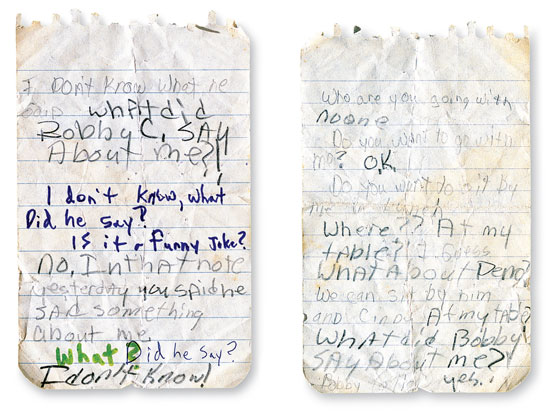 I Don't know what he
Said what did
Bobby C. SAY
About me?
I don't know, what
Did he say?
Is it a funny Joke?
No, In that note
yesterday you said he
SAD something
about me
What Did he say?
I don't Know!
who are you going with
noone
Do you want to go with
me? O.K.
Do you want to sit by
me in lunch
Where?? At my
table? I Guess
WhAt About Deno?
we can sit by him
and Cindy At my table?
What did Bobby
SAY About me?
yes.